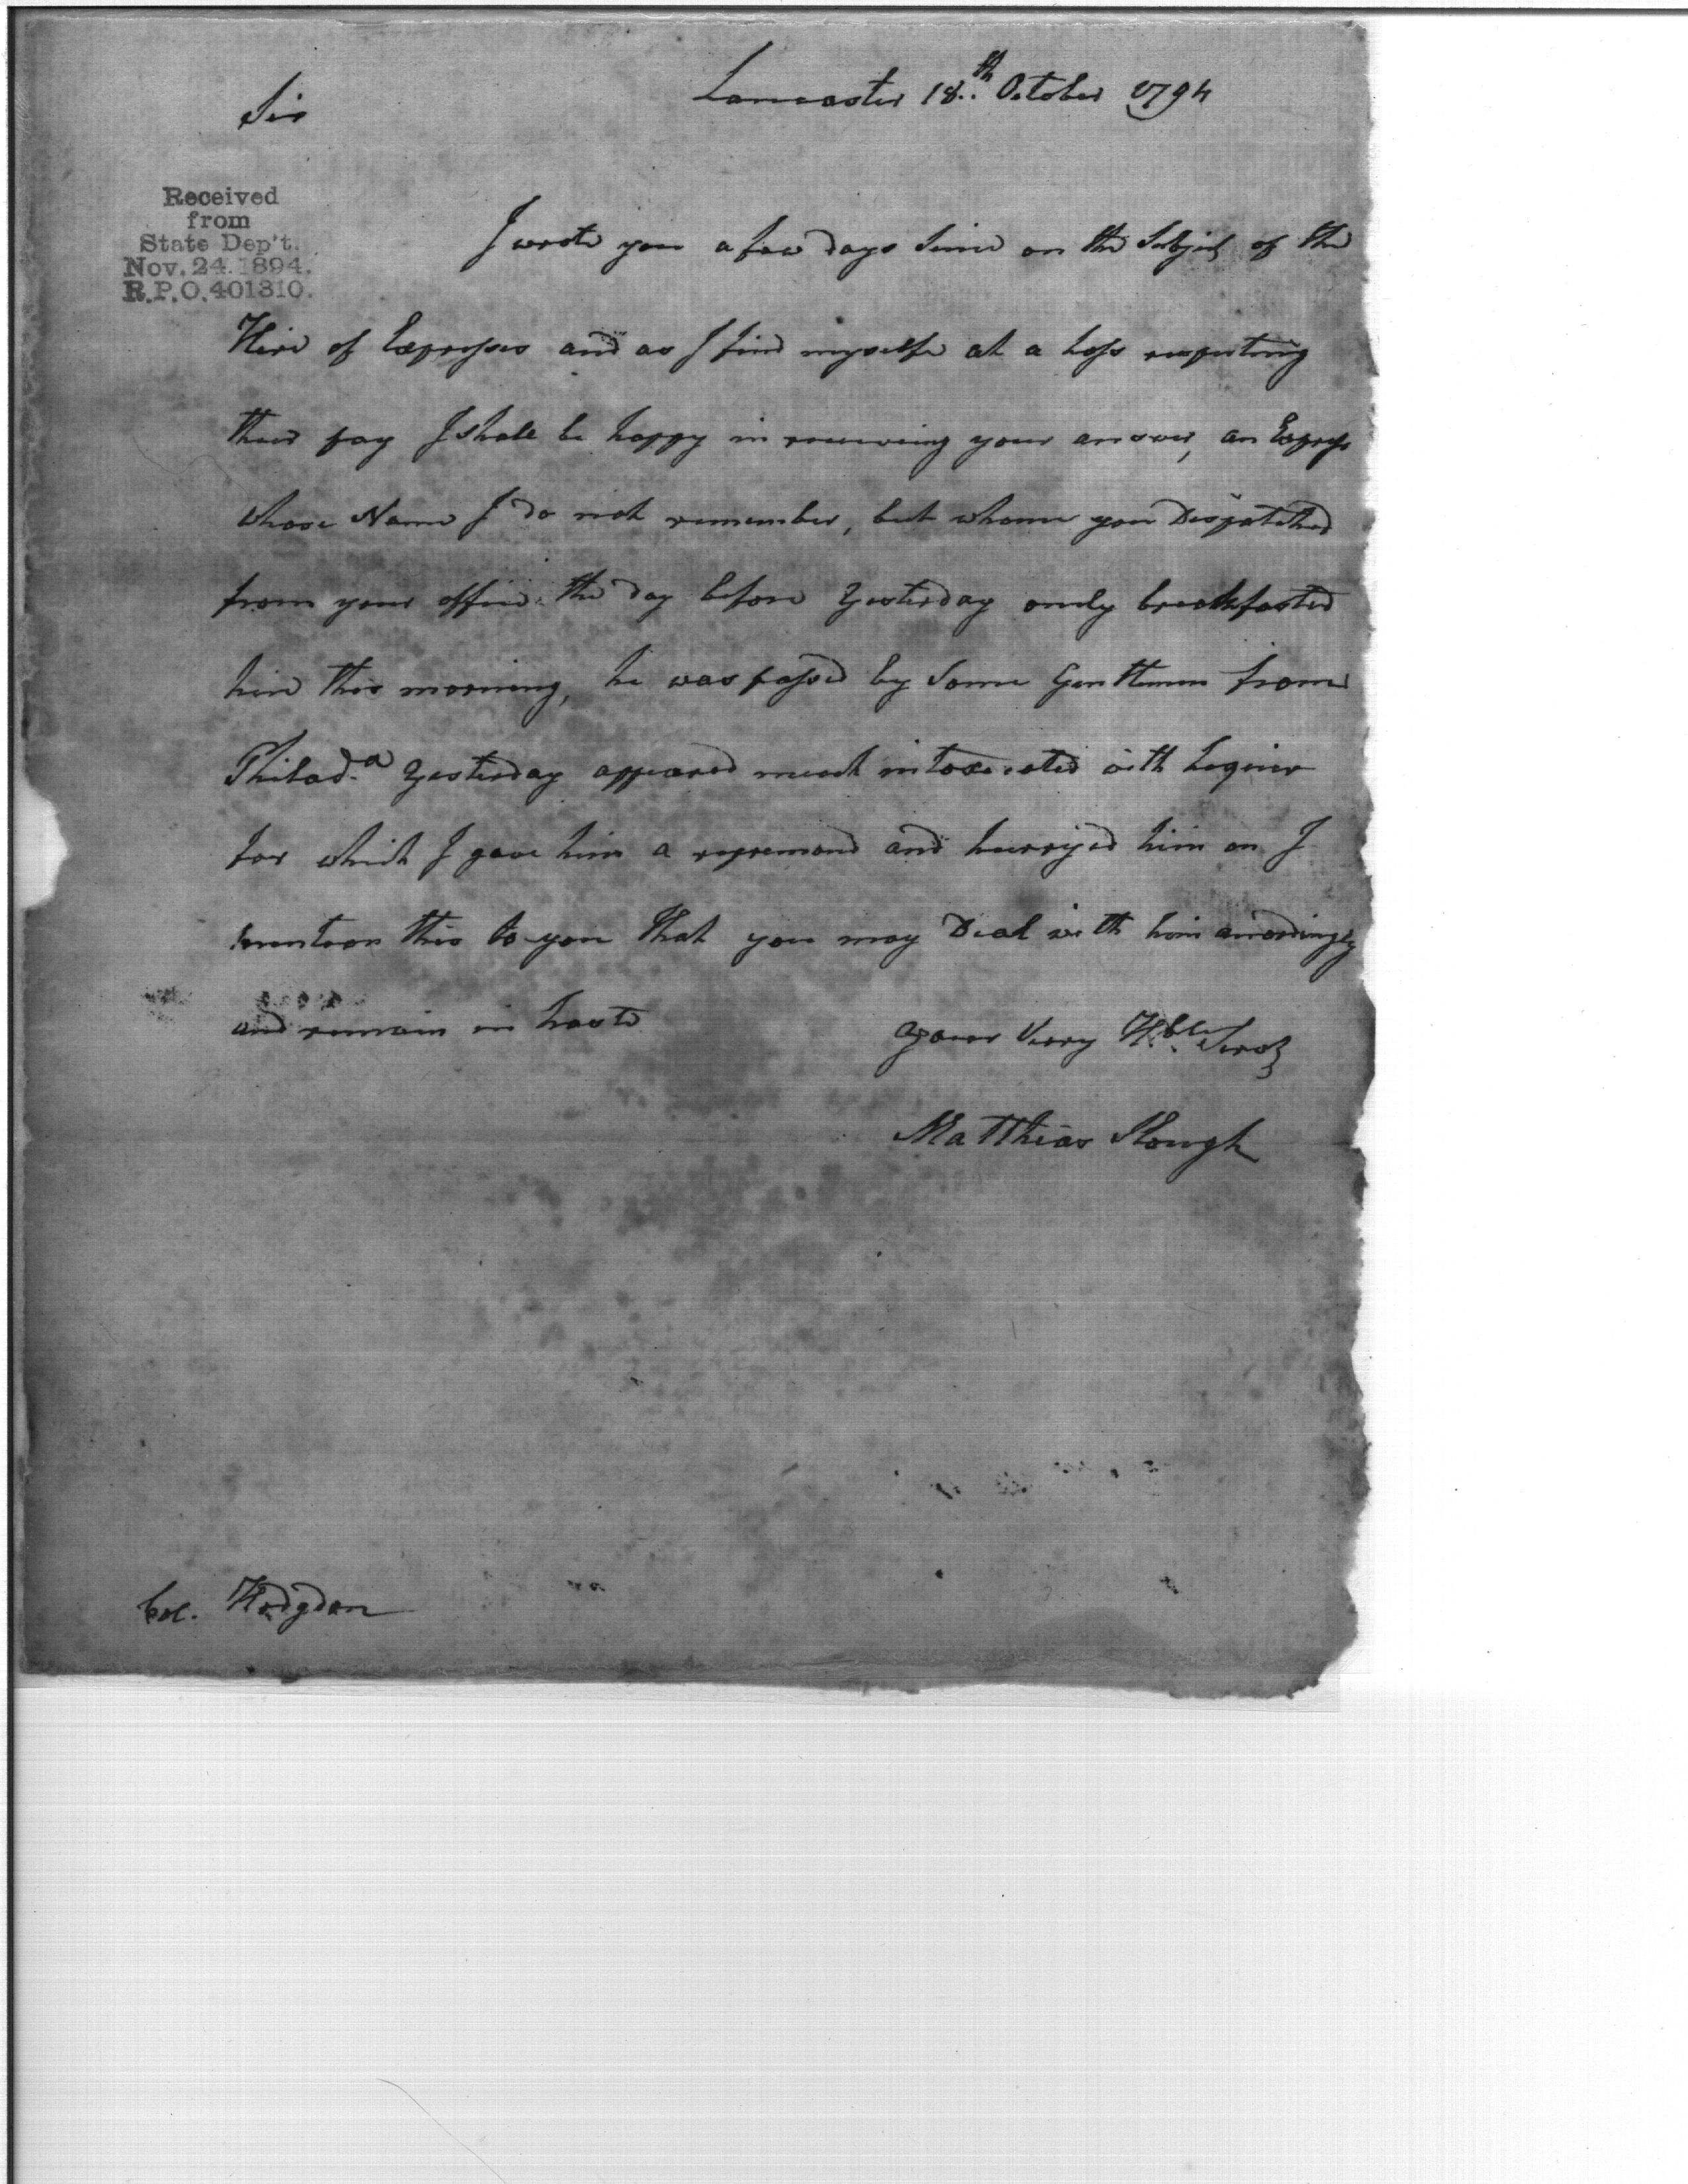 Lancaster 18th October 1794
Sir
Received
from
State Dep't.
Nov. 24. 1894.
R.P.O. 401310.
I wrote you a few days Since on the Subject of the
Hire of Expresses and as I find myselfe at a loss respecting
their pay I shall be happy in receiving your answer, an Express
whose Name I do not remember, but whome you Dispatched
from your office the day before Yesterday only breakfasted
here this morning, he was passed by Some Gentlemen from
Philada Yesterday appeared much intoxicated with Lequier
for which I gave him a repremand and hurryed him on I
mention this to you that you may Deal with him accordingly
and remain in haste
Your Very Hble Servt
Matthias Slough
Col. Hodgdon